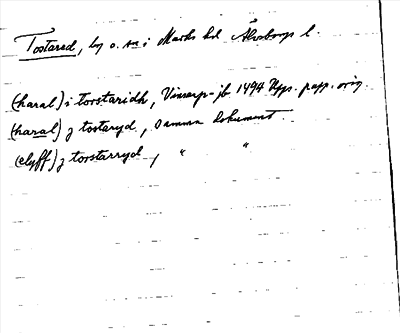 Tostared, by o. sn i Marks hd Älvsborgs l.
(haral) i torstaridh, Vinsarp-jb 1494 Upps. papp. orig.
(haral) j tostaryd, samma dokument.
(elyff) j torstarryd, " "